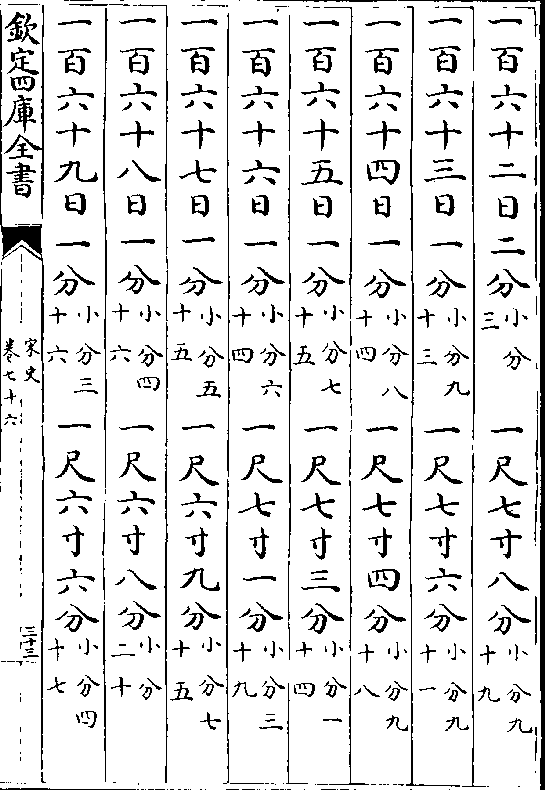 一百六十二日二分小分三一尺七寸八分小分九十九
一百六十三日一分小分九十三一尺七寸六分小分九十一
一百六十四日一分小分八十四一尺七寸四分小分九十八
一百六十五日一分小分七十五一尺七寸三分小分一十四
一百六十六日一分小分六十四一尺七寸一分小分三十九
一百六十七日一分小分五十五一尺六寸九分小分七十五
一百六十八日一分小分四十六一尺六寸八分小分二十
一百六十九日一分小分三十六一尺六寸六分小分四十七
欽定四庫全書
宋史
卷七十六
三十三